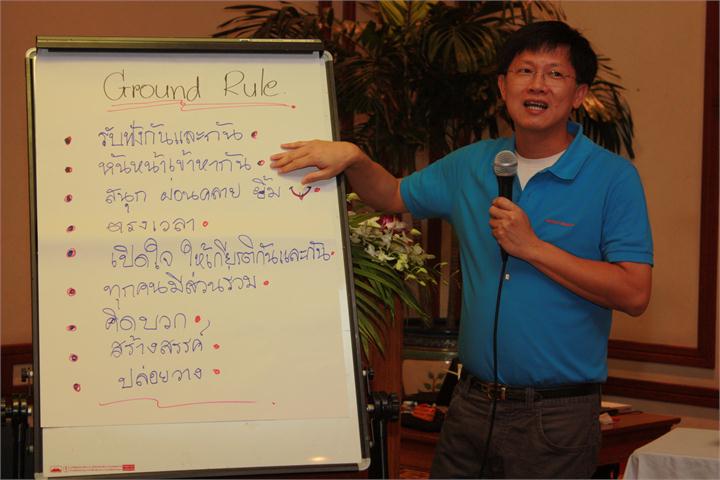 Ground Rule
รับฟังกันและกัน
หันหน้าเข้าหากัน
สนุก ผ่อนคลาย ยิ้ม
ตรงเวลา
เปิดใจ ให้เกียรติกันและกัน
ทุกคนมีส่วนร่วม
คิดบวก
สร้างสรรค์
ปล่อยวาง